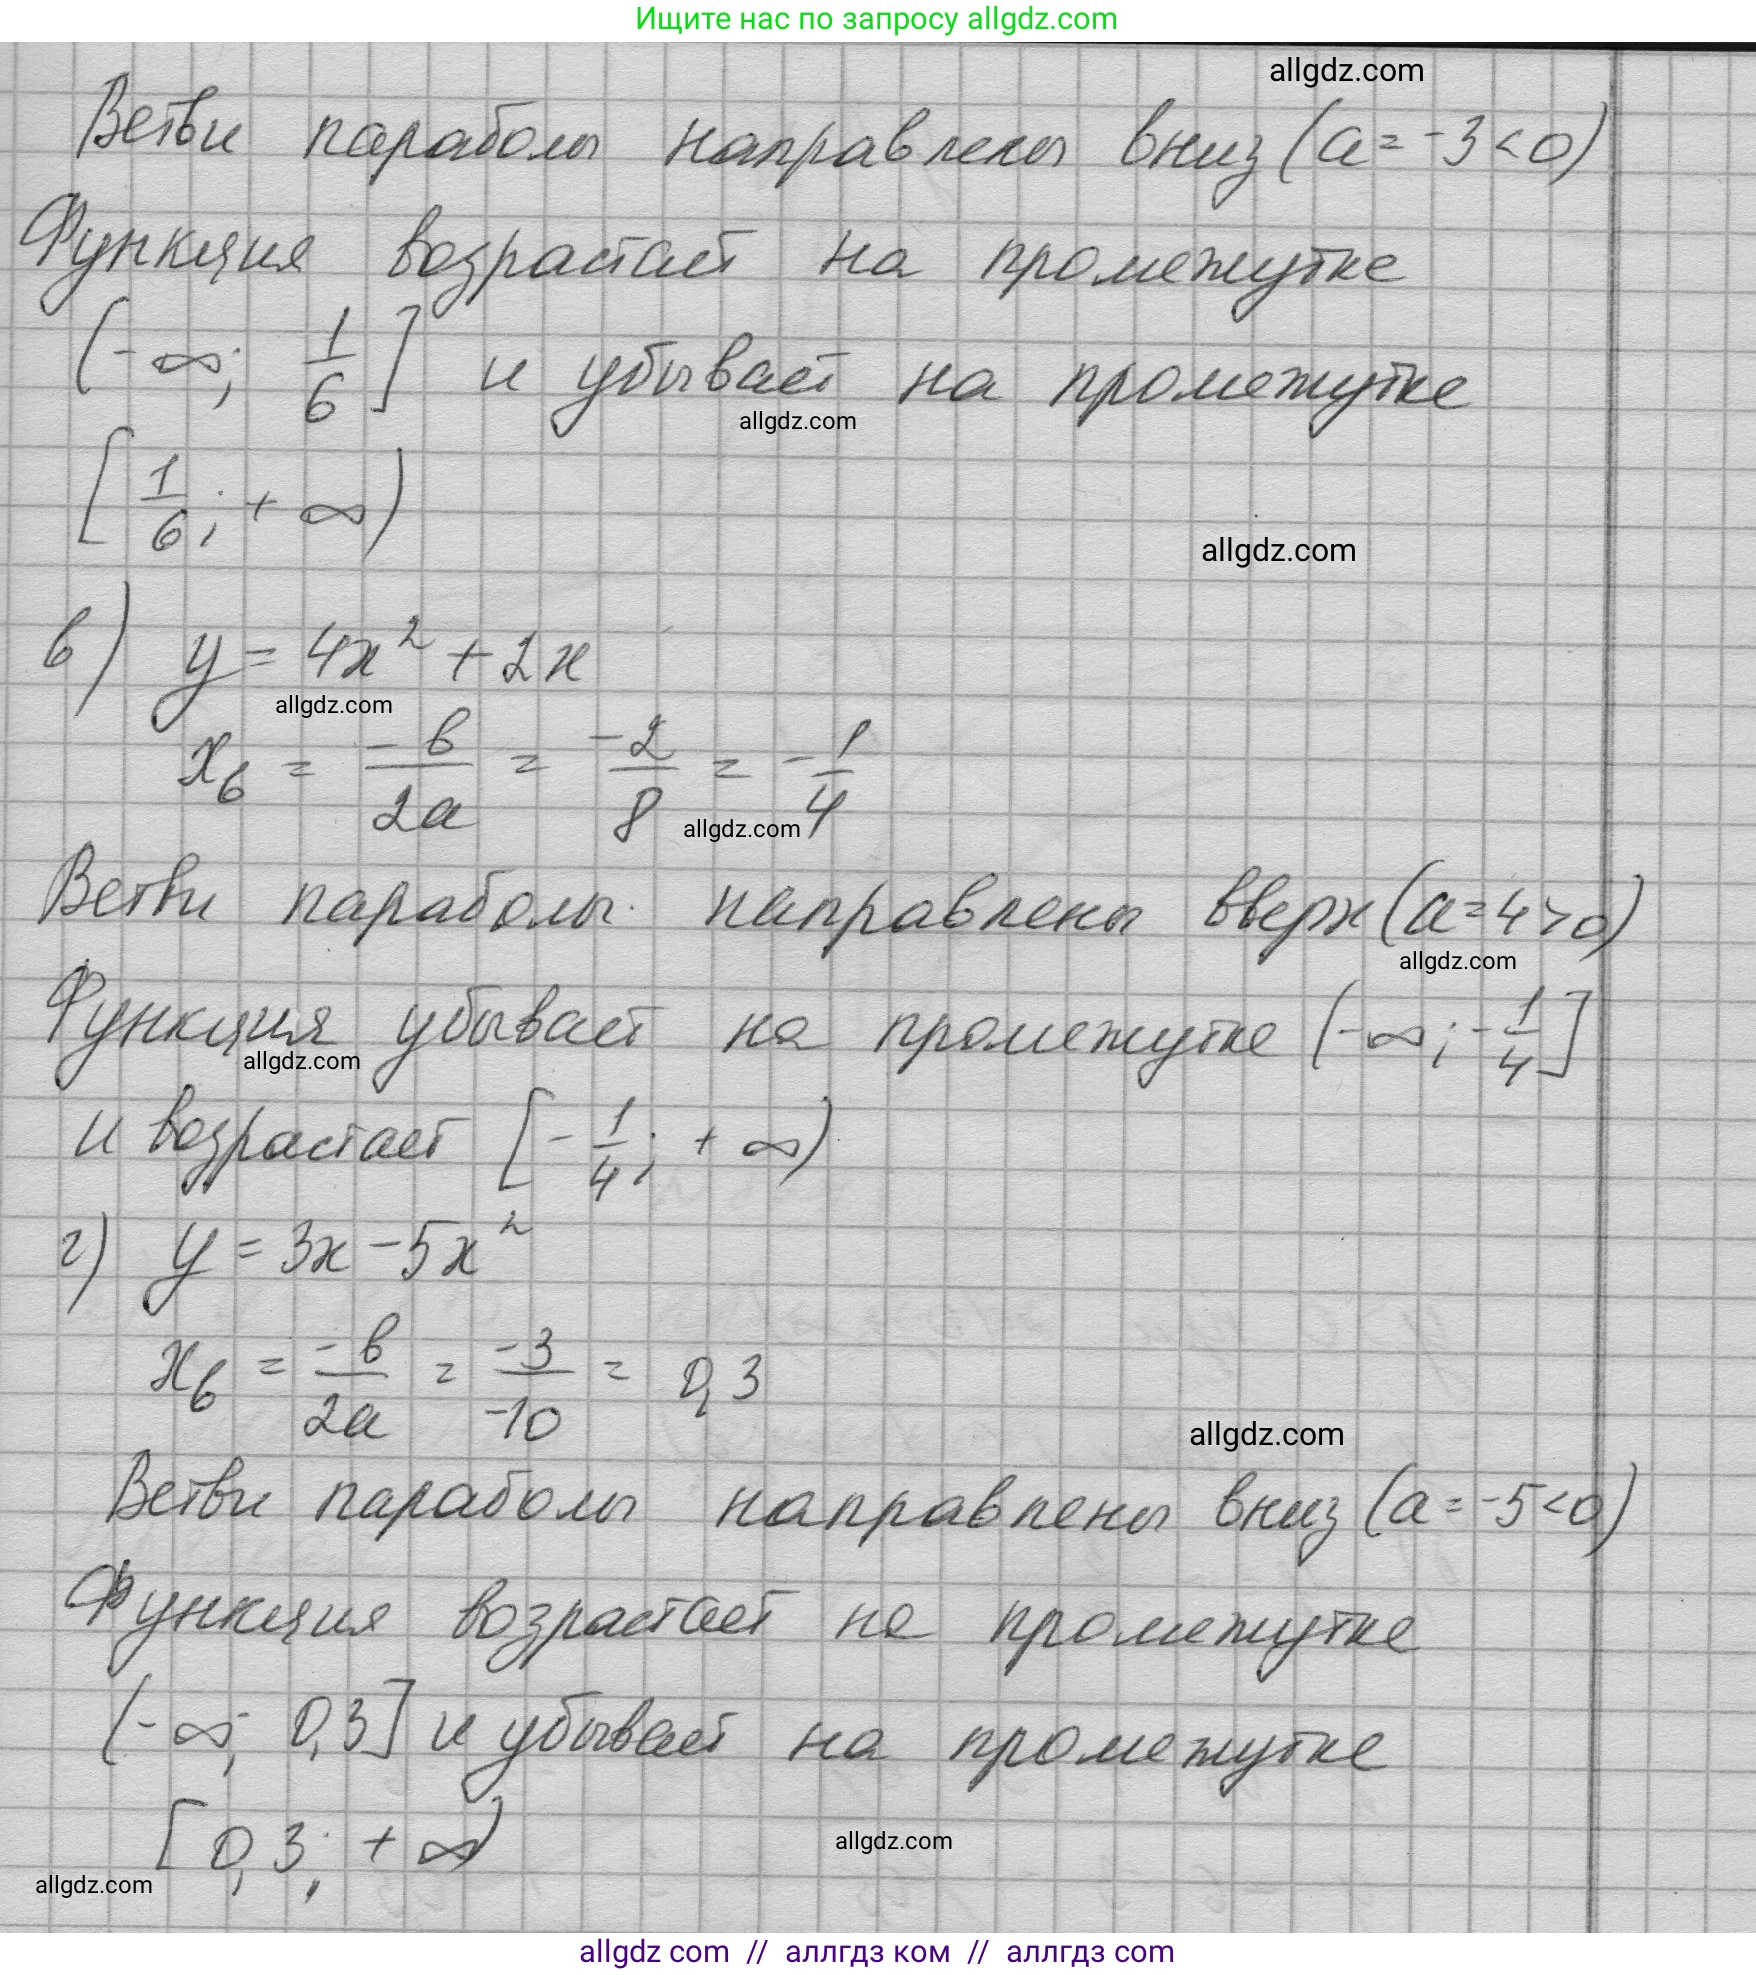 Ищите нас по запросу allgdz.com
allgdz.com
Ветви параболы направлены вниз (a = -3 < 0)
Функция возрастает на промежутке
(-∞; 1/6] и убывает на промежутке
allgdz.com
[1/6; +∞)
allgdz.com
в) y = 4x² + 2x
allgdz.com
xв = -в/2a = -2/8 = -1/4
allgdz.com
Ветви параболы направлены вверх (a = 4 > 0)
allgdz.com
Функция убывает на промежутке (-∞; -1/4]
allgdz.com
и возрастает [-1/4; +∞)
г) y = 3x - 5x²
xв = -в/2a = -3/-10 = 0,3
allgdz.com
Ветви параболы направлены вниз (a = -5 < 0)
Функция возрастает на промежутке
(-∞; 0,3] и убывает на промежутке
[0,3; +∞)
allgdz.com
allgdz.com
allgdz com // аллгдз ком // аллгдз com